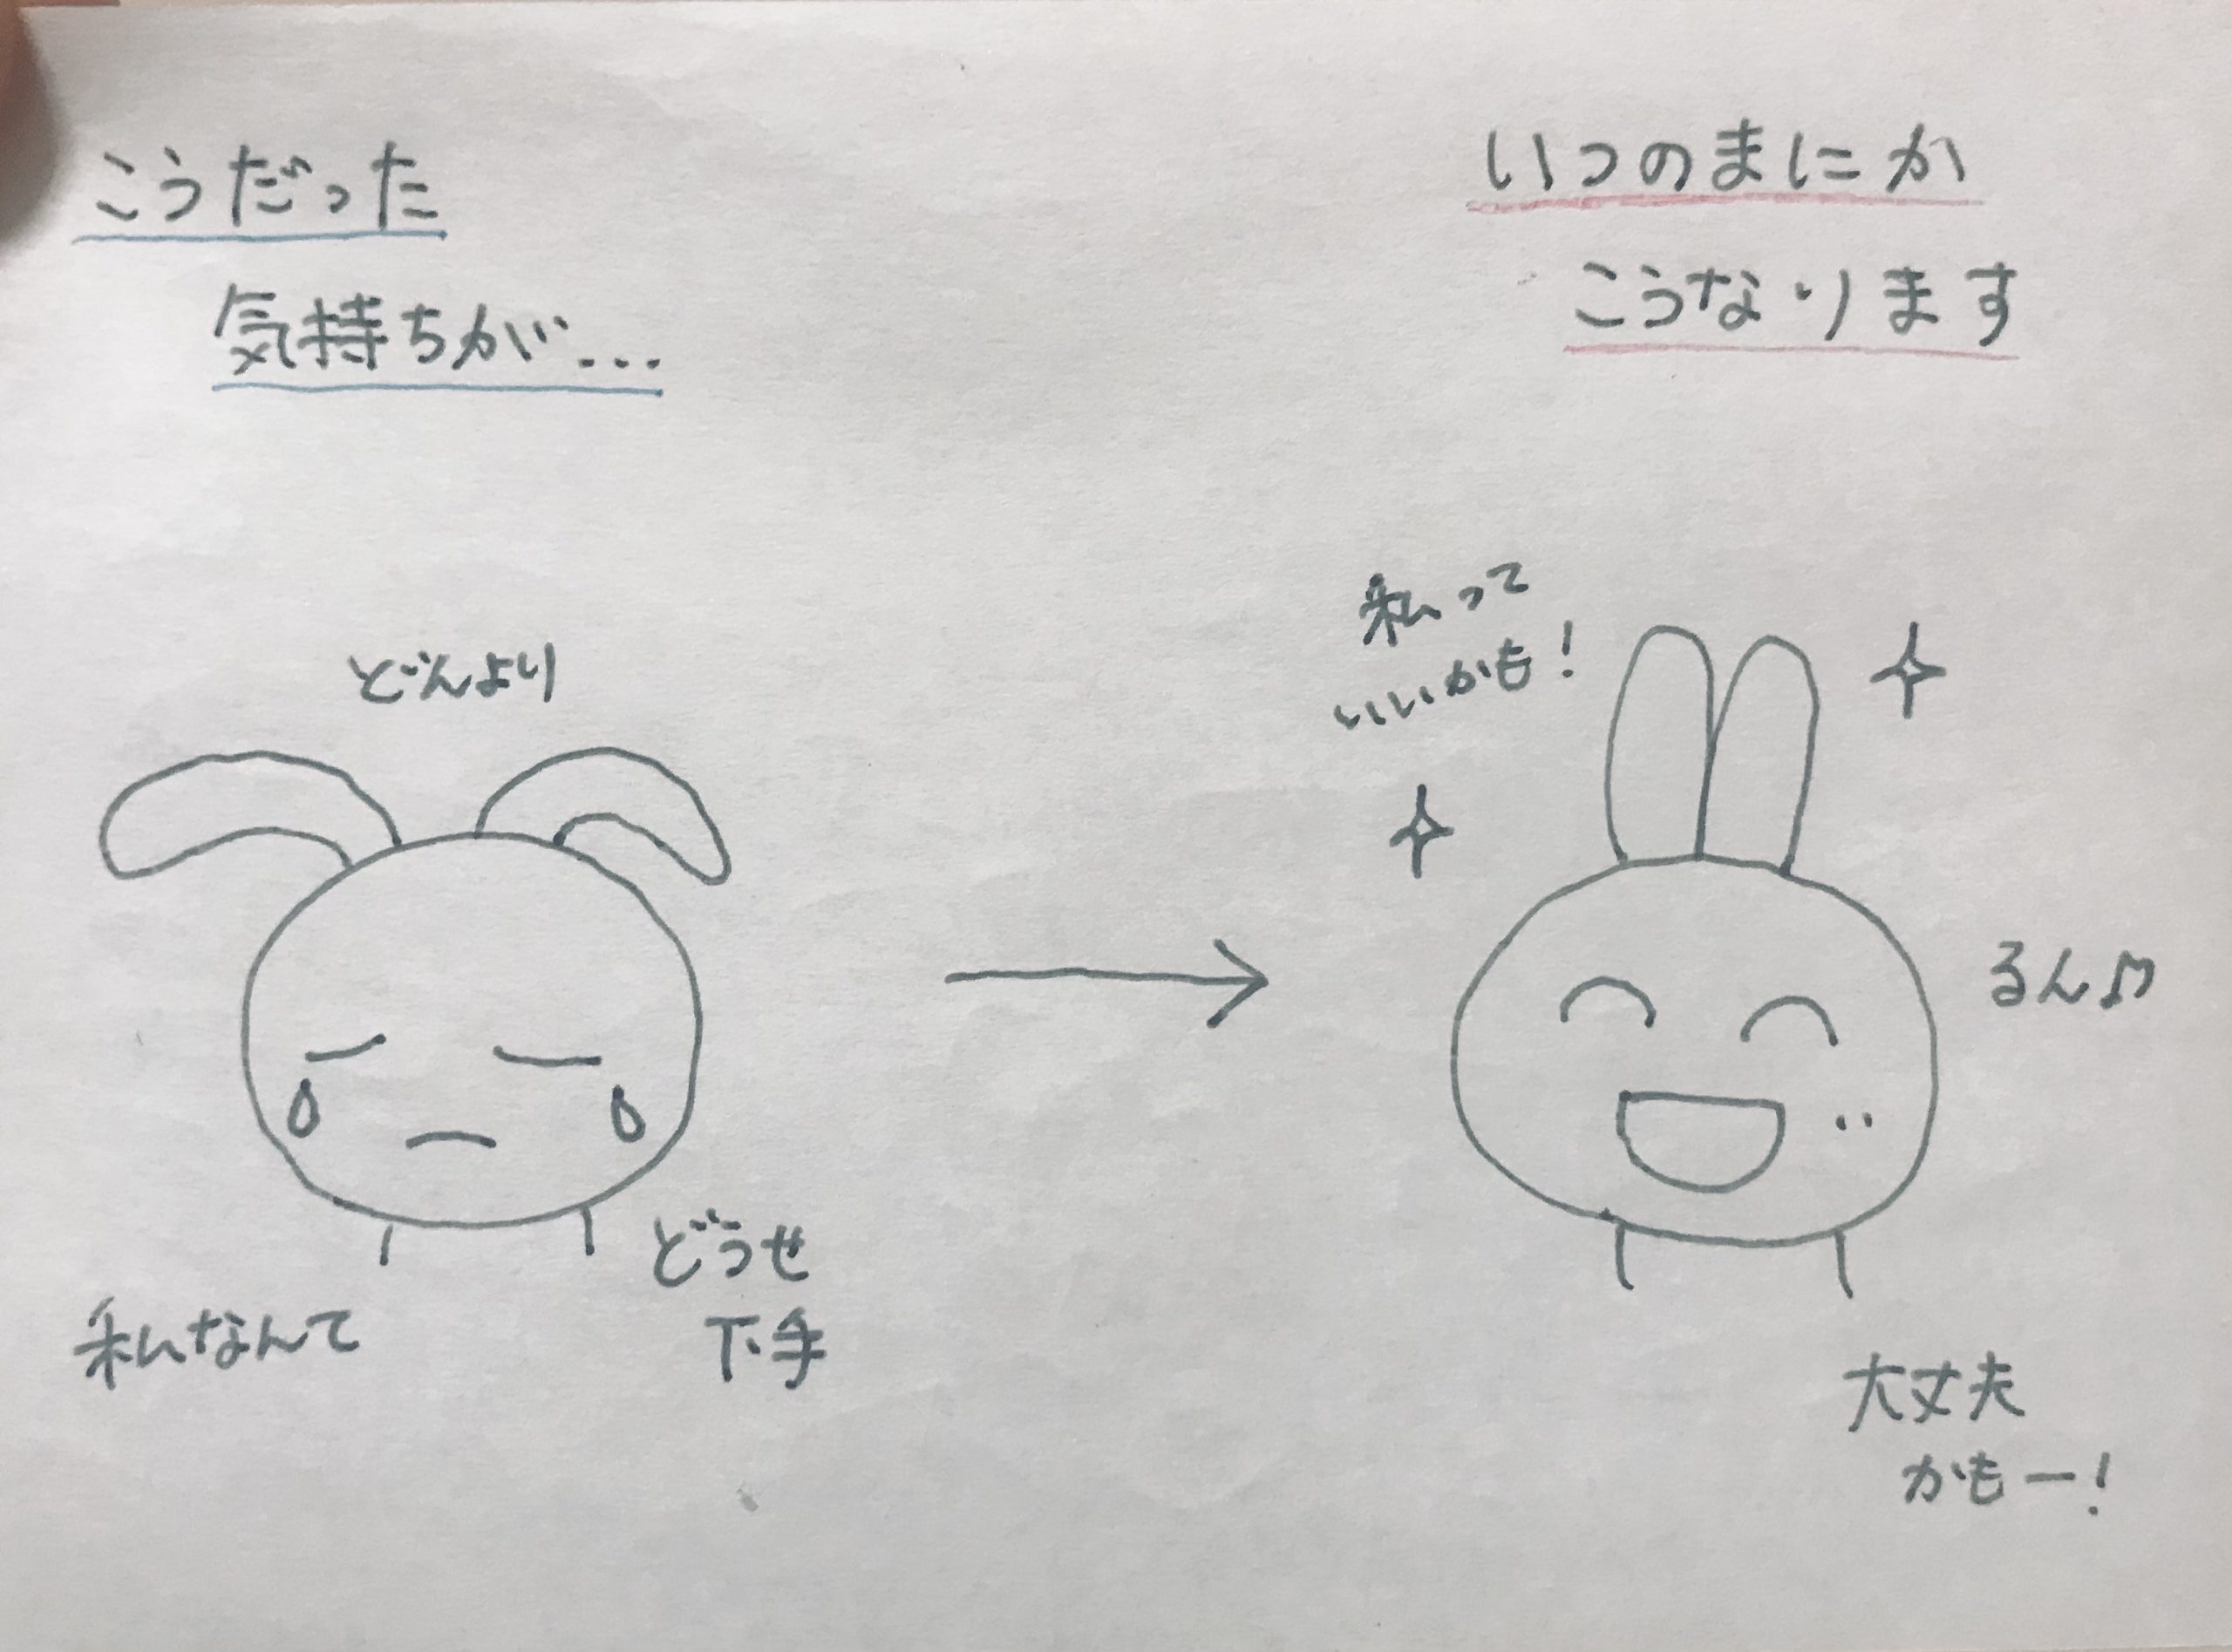 こうだった
気持ちが...
どんより
私なんて
どうせ
下手
いつのまにか
こうなります
私って
いいかも!
るん♫
大丈夫
かもー!